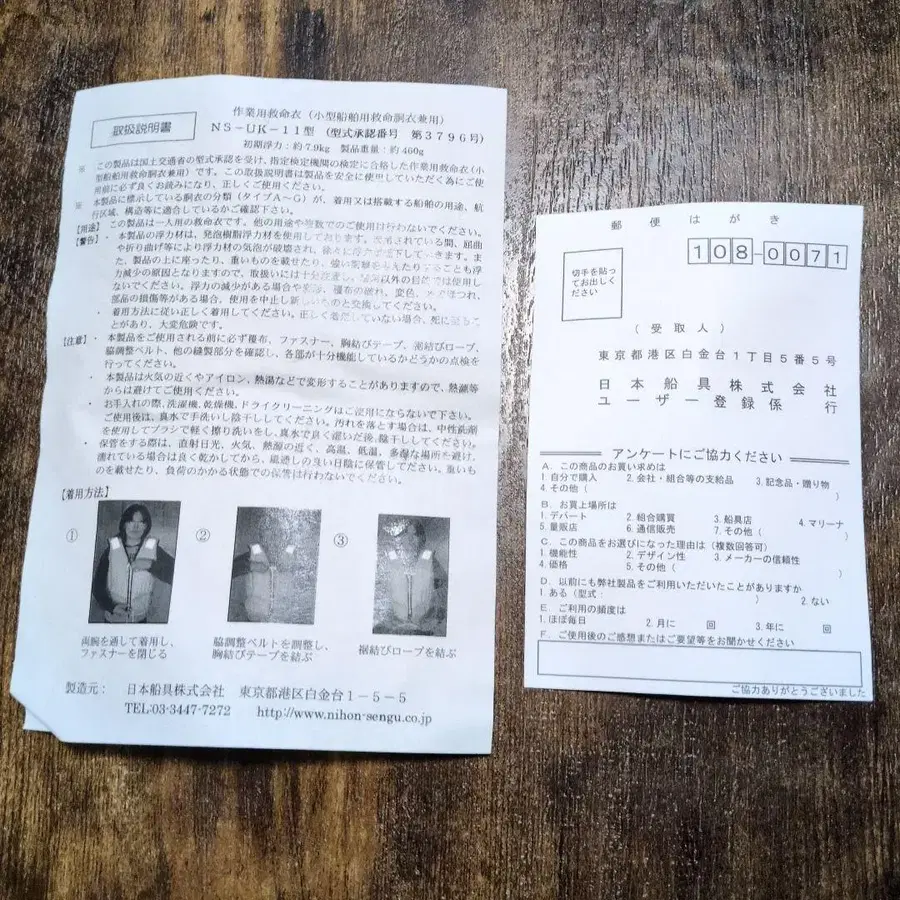 取扱説明書
作業用救命衣（小型船舶用救命胴衣兼用）
NS－UK－11型　(型式承認番号　第3796号)
初期浮力：約7.9kg　製品重量：約460g
※　この製品は国土交通省の型式承認を受け、指定検定機関の検定に合格した作業用救命衣（小
型船舶用救命胴衣兼用）です。この取扱説明書は製品を安全に使用していただく為にご使
用前に必ず良くお読みになり、正しくご使用ください。
※　本製品に標示している胴衣の分類（タイプA～G）が、着用又は搭載する船舶の用途、航
行区域、構造等に適合しているかご確認下さい。
【用途】　この製品は一人用の救命衣です。他の用途や複数でのご使用は行わないでください。
【警告】・本製品の浮力材は、発泡樹脂浮力材を使用しております。
や折り曲げ等により浮力材の気泡が破壊され、
た、製品の上に座ったり、重いものを載せたり、
力減少の原因となりますので、取扱いには十分
ないでください。浮力の減少がある場合や
部品の損傷等がある場合、使用を中止し新しいものと交換してください。
・着用方法に従い正しく着用してください。正しく着用していない場合、死に至るこ
とがあり、大変危険です。
【注意】・本製品をご使用される前に必ず覆布、ファスナー、胸結びテープ、裾結びロープ、
脇調整ベルト、他の縫製部分を確認し、各部が十分機能しているかどうかの点検を
行ってください。
・本製品は火気の近くやアイロン、熱湯などで変形することがありますので、熱源等
からは避けてご使用ください。
・お手入れの際、洗濯機、乾燥機、ドライクリーニングはご使用にならないで下さい。
ご使用後は、真水で手洗いし陰干ししてください。汚れを落とす場合は、中性洗剤
を使用してブラシで軽く擦り洗いをし、真水で良く濯いだ後、陰干ししてください。
・保管をする際は、直射日光、火気、熱源の近く、高温、低温、多湿な場所を避け、
濡れている場合は良く乾かしてから、風通しの良い日陰に保管してださい。重いも
のを載せたり、負荷のかかる状態での保管は行わないでください。
【着用方法】
①
②
③
両腕を通して着用し、
ファスナーを閉じる
脇調整ベルトを調整し、
胸結びテープを結ぶ
裾結びロープを結ぶ
製造元：　日本船具株式会社　東京都港区白金台1－5－5
TEL:03-3447-7272　http://www.nihon-sengu.co.jp
郵便はがき
108-0071
切手を貼っ
てお出しく
ださい
（受取人）
東京都港区白金台1丁目5番5号
日本船具株式会社
ユーザー登録係　行
アンケートにご協力ください
A．この商品のお買い求めは
1.自分で購入　2.会社・組合等の支給品　3.記念品・贈り物
4.その他（　）
B．お買上場所は
1.デパート　2.組合購買　3.船具店　4.マリーナ
5.量販店　6.通信販売　7.その他（　）
C．この商品をお選びになった理由は（複数回答可）
1.機能性　2.デザイン性　3.メーカーの信頼性
4.価格　5.その他（　）
D．以前にも弊社製品をご利用いただいたことがありますか
1.ある（型式：　）　2.ない
E．ご利用の頻度は
1.ほぼ毎日　2.月に　回　3.年に　回
F．ご使用後のご感想またはご要望等をお聞かせください
ご協力ありがとうございました